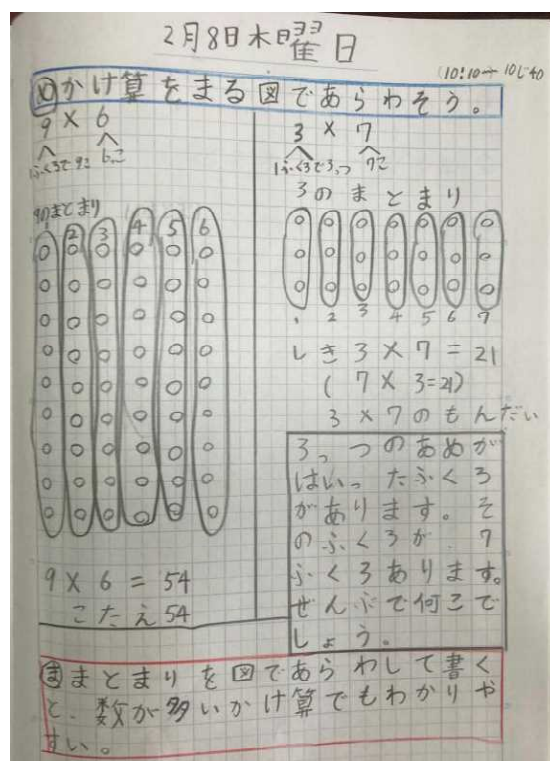 2月8日木曜日
ヨヨ
(10:10→10じ40
めかけ算をまる図であらわそう。
9×6
1ふくろで9こ 6こ
9のまとまり
1 2 3 4 5 6
9×6=54
こたえ54
3×7
1ふくろで3っつ 7こ
3のまとまり
1 2 3 4 5 6 7
しき3×7=21
(7×3=21)
3×7のもんだい
3っつのあめが
はいったふくろ
があります。そ
のふくろが7
ふくろあります。
ぜんぶで何こで
しょう。
ままとまりを図であらわして書く
と、数が多いかけ算でもわかりや
すい。